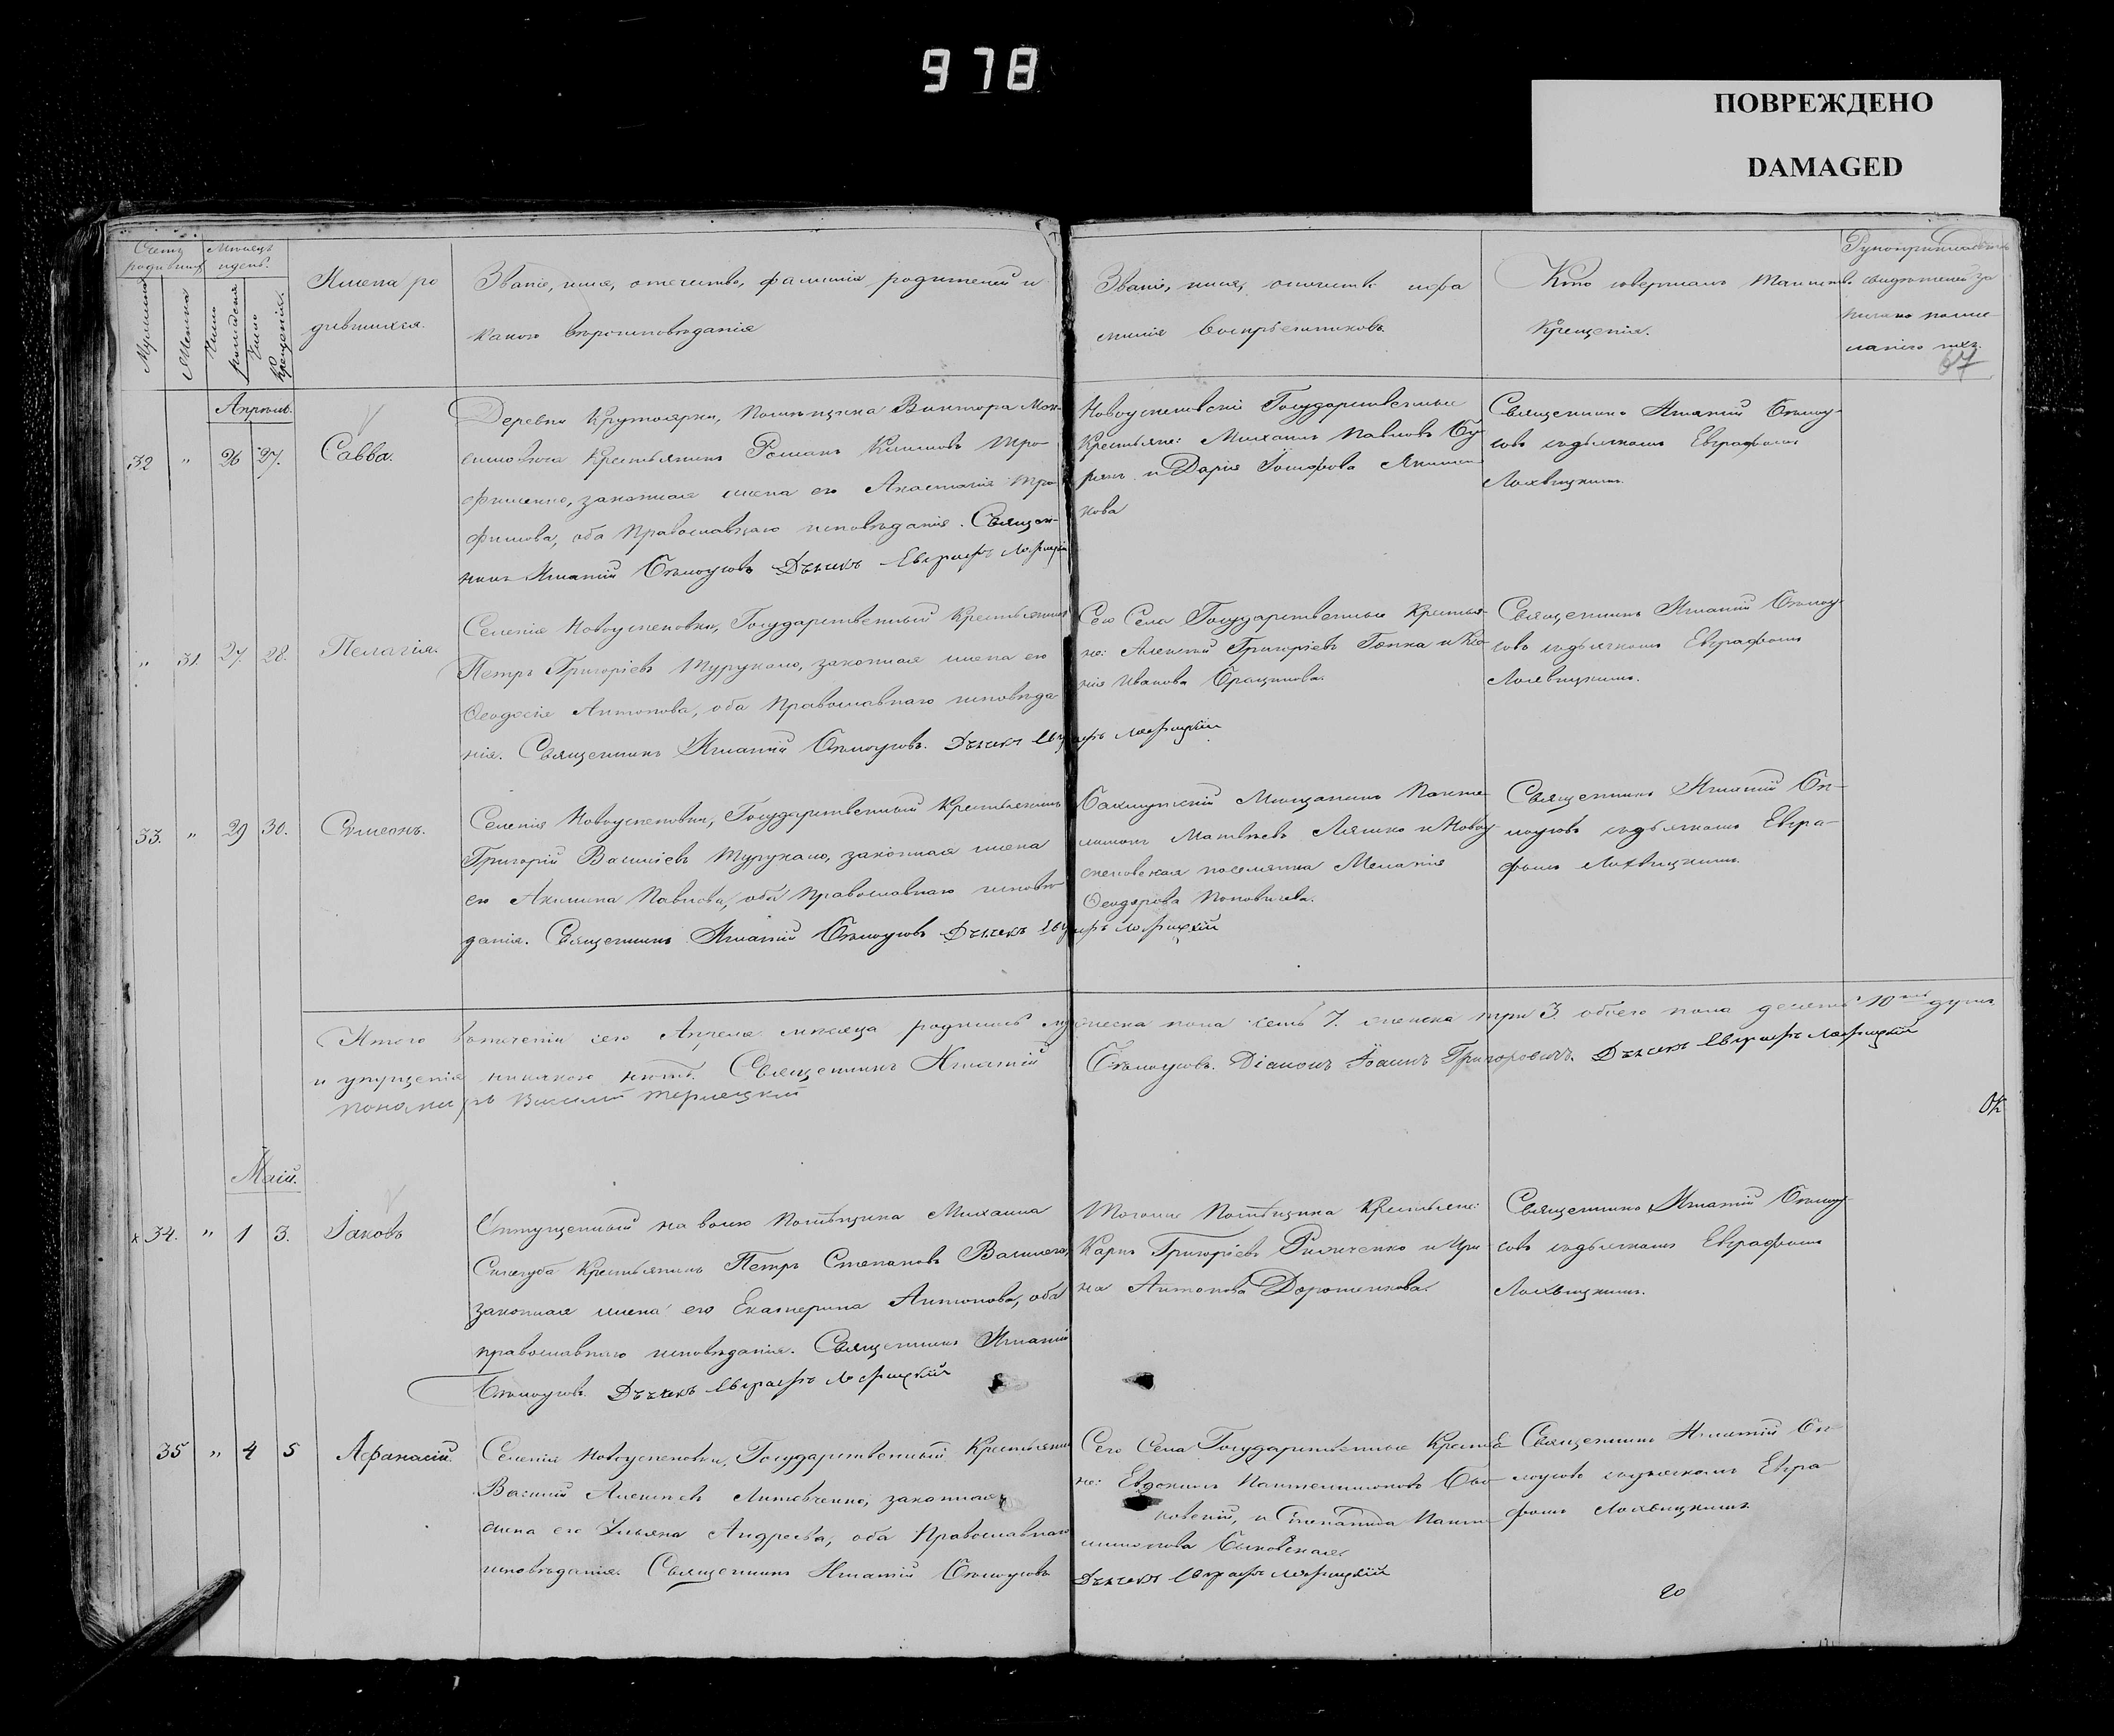 978
ПОВРЕЖДЕНО
DAMAGED
Счетъ родившихся
Мѣсяцъ и день.
Мужеска
Женска
Число рожденія
Число Крещенія.
Имена ро
дившихся.
Званіе, имя, отечество, фамилія родителей и
какого вѣроисповѣданія
Званіе, имя, отечество и фа
милія воспріемниковъ
Кто совершалъ таинство
Крещенія.
Рукоприкладство
свидѣтелей за
писано по же
ланію ихъ.
67
Апрѣль.
32 " 26 27. Савва.
Деревни Крутоярки, Помѣщика Виктора
крестьянинъ Романъ Климовъ Тро-
фименко, законная жена его Анастасія Тро-
фимова, оба Православнаго исповѣданія. Священ-
никъ Игнатій Бѣлоусовъ Дьячекъ Евграфъ Лохвицкій
Новоуспеновскіе Государственные
Крестьяне: Михаилъ Павловъ Бу-
рякъ и Дарія Іосифова Якимен-
кова
Священникъ Игнатій Бѣлоу-
совъ съ дьячкомъ Евграфомъ
Лохвицкимъ.
" 31. 27. 28. Пелагія.
Селенія Новоуспеновки, Государственный Крестьянинъ
Петръ Григоріевъ Турукало, законная жена его
Ѳеодосія Антонова, оба Православнаго исповѣда
нія. Священникъ Игнатій Бѣлоусовъ. Дьячекъ Евграфъ Лохвицкій
Сего Села Государственные крестья-
не: Алексій Григоріевъ Гонка и Ксе-
нія Иванова
Священникъ Игнатій Бѣлоу-
совъ съ дьячкомъ Евграфомъ
Лохвицкимъ.
33. " 29 30. Сѵмеонъ.
Селенія Новоуспеновки, Государственный Крестьянинъ
Григорій Василіевъ Турукало, законная жена
его Акилина Павлова, оба Православнаго исповѣ-
данія. Священникъ Игнатій Бѣлоусовъ Дьячекъ Евграфъ Лохвицкій
Бахмутскій Мѣщанинъ Панте-
лимонъ Матвѣевъ Ляшко и Новоу-
спеновская поселянка Меланія
Ѳеодорова Поповичева.
Священникъ Игнатій Бѣ-
лоусовъ съ дьячкомъ Евгра-
фомъ Лохвицкимъ.
Итого въ теченіи сего Апреля мѣсяца родилось мужеска пола семь 7. женска три 3. обоего пола десять 10ть душъ
и упущенія никакого нѣтъ. Священникъ Игнатій Бѣлоусовъ. Діаконъ Іоаннъ Григоровичъ. Дьячекъ Евграфъ Лохвицкій
Пономарь Василій Терлецкій
Маій.
х 34. " 1 3. Іаковъ
Отпущенный на волю Помѣщика Михаила
крестьянинъ Петръ Степановъ
законная жена его Екатерина Антонова, оба
православнаго исповѣданія. Священникъ Игнатій
Бѣлоусовъ. Дьячекъ Евграфъ Лохвицкій
Тогоже Помѣщика Крестьяне:
Карпъ Григоріевъ и Ири
на Антонова Дорошенкова.
Священникъ Игнатій Бѣлоу-
совъ съ дьячкомъ Евграфомъ
Лохвицкимъ.
35 " 4 5 Афанасій.
Селенія Новоуспеновки, Государственный Крестьянинъ
Василій Алексѣевъ Литовченко, законная
жена его Ульяна Андреева, оба Православнаго
исповѣданія. Священникъ Игнатій Бѣлоусовъ
Дьячекъ Евграфъ Лохвицкій
Сего Села Государственные Крестья-
не: Евдокимъ Пантелимоновъ
и Степанида Панте-
лимонова
Священникъ Игнатій Бѣ-
лоусовъ съ дьячкомъ Евгра-
фомъ Лохвицкимъ.
20